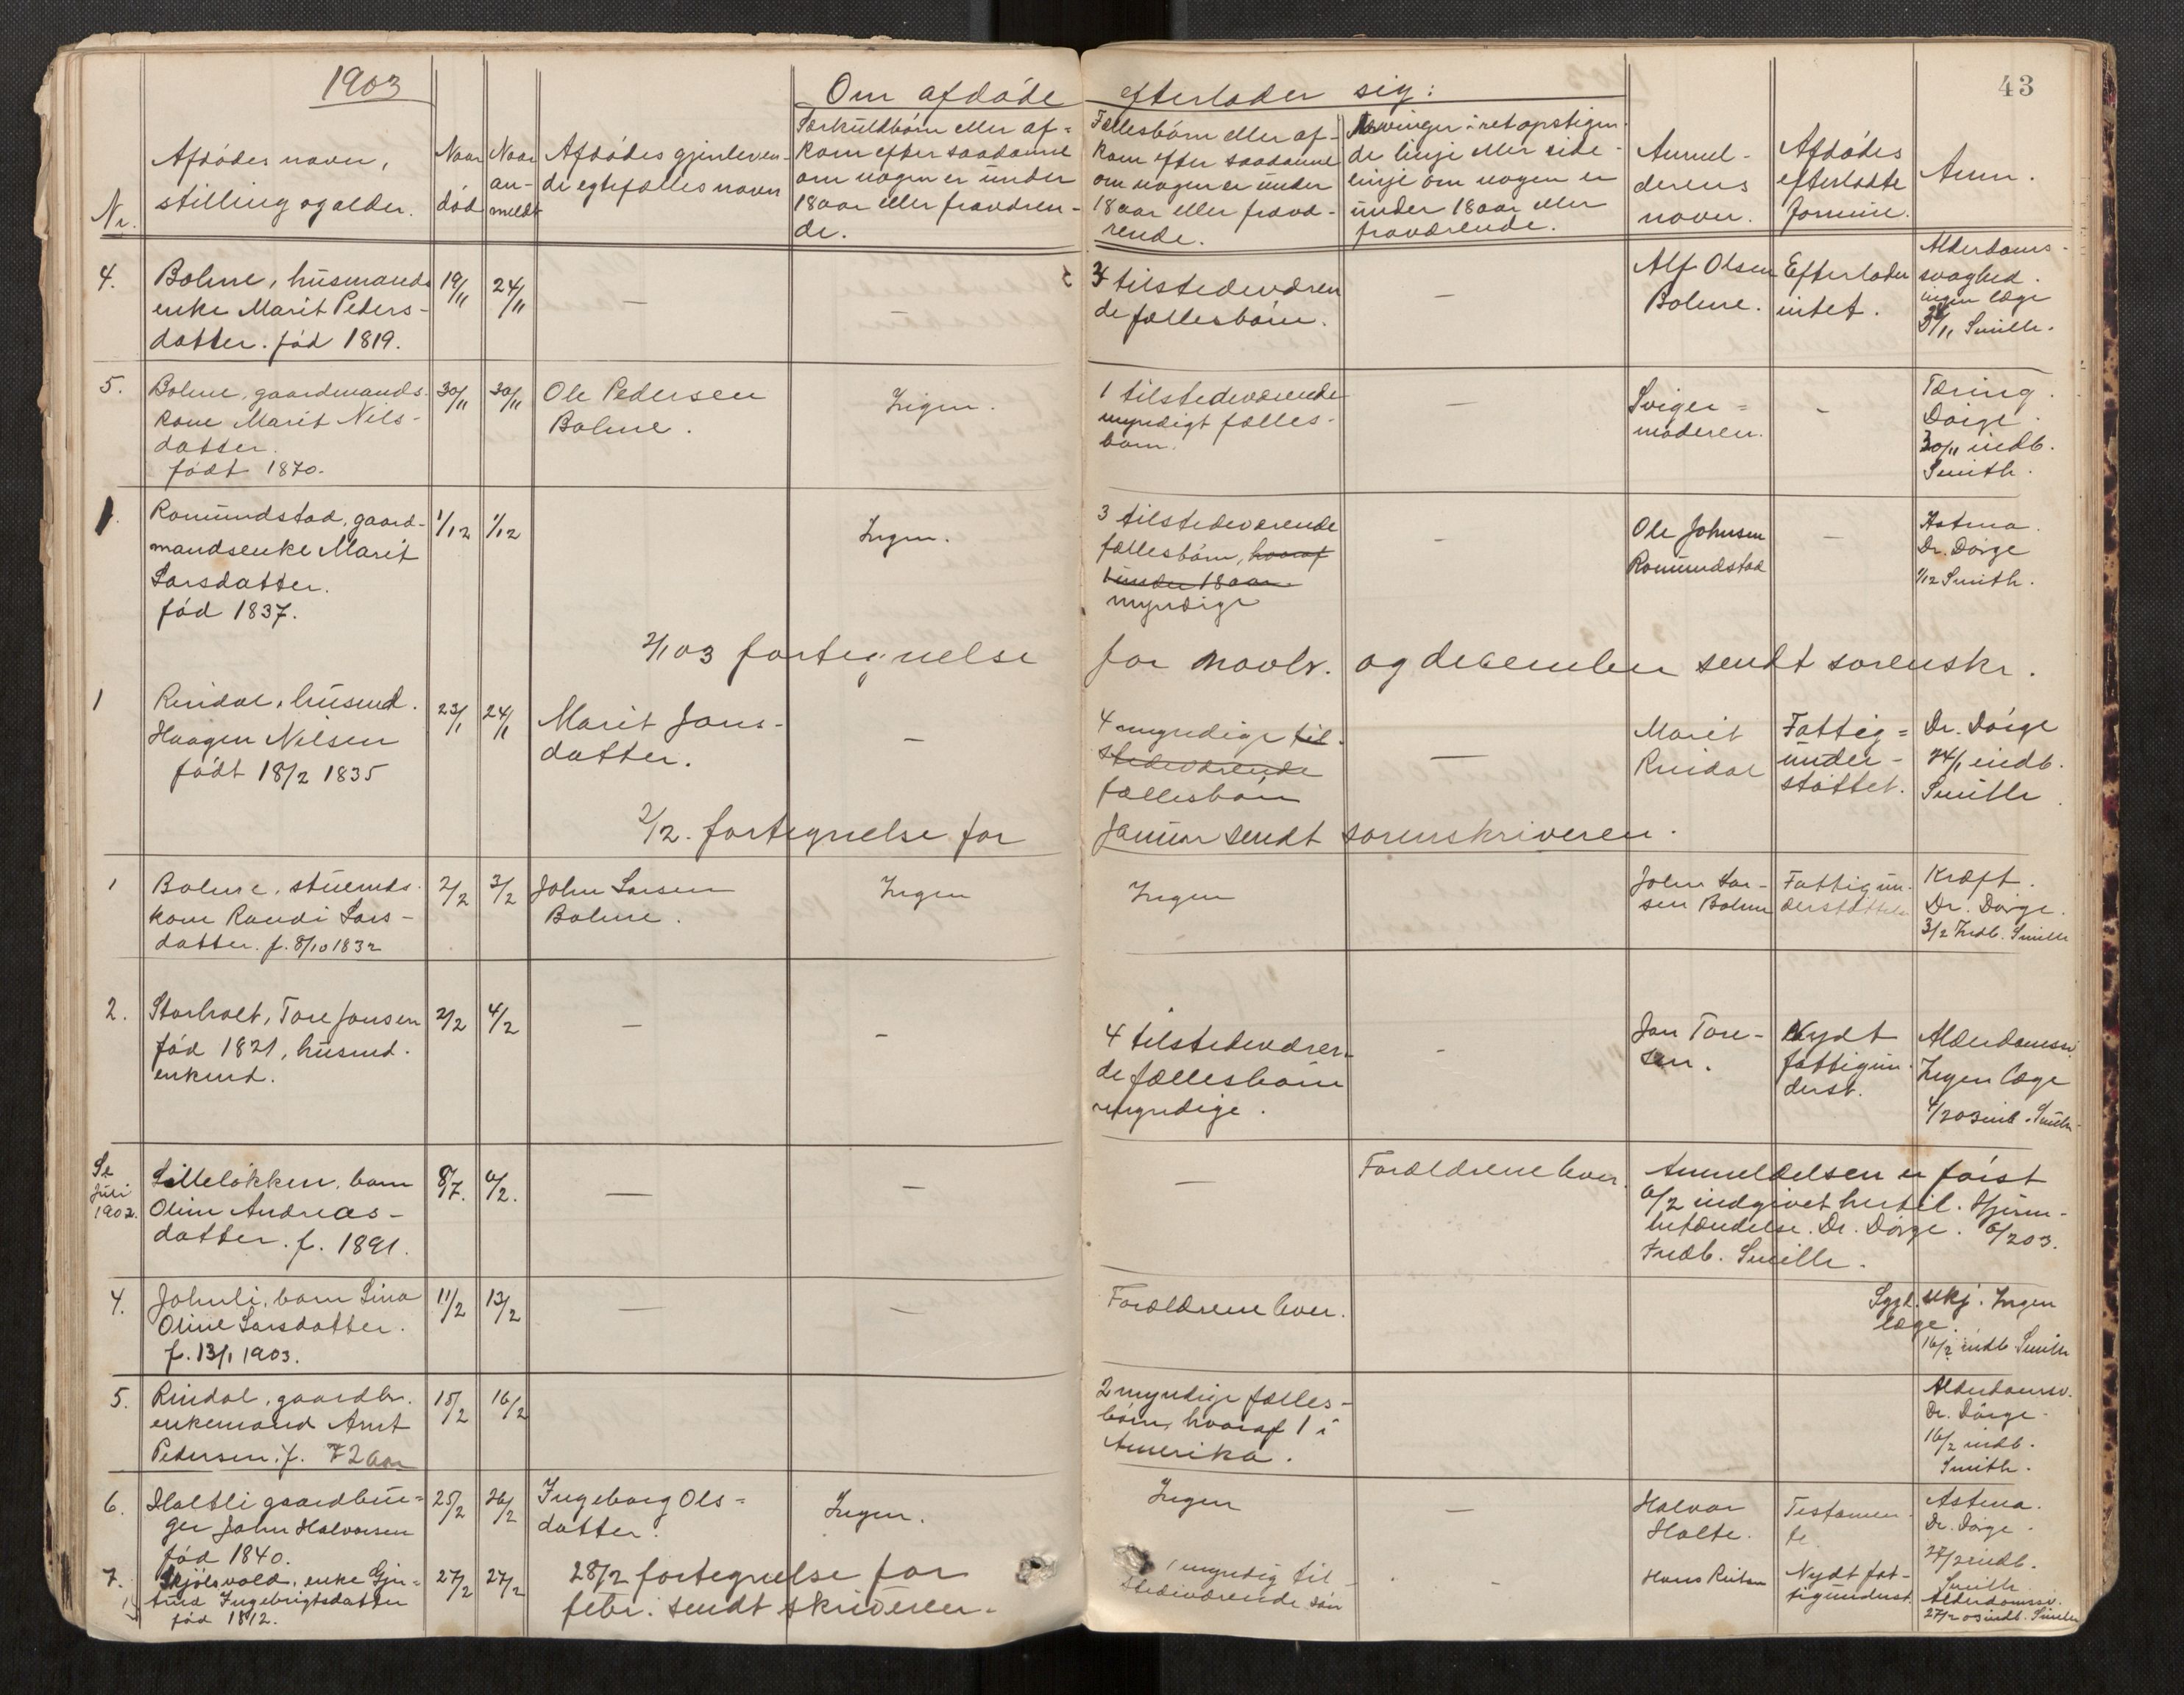 1903
43
Om afdøde efterlader sig:
Nr.
Afdødes navn,
stilling og alder.
Naar
død
Naar
an-
meldt
Afdødes gjenleven-
de egtefælles navn
Særkuldbørn eller af-
kom efter saadanne
om nogen er under
18 aar eller fraværen-
de.
Fællesbørn eller af-
kom efter saadanne
om nogen er under
18 aar eller fravæ-
rende.
Arvinger i ret opstigen-
de linje eller side-
linje om nogen er
under 18 aar eller
fraværende.
Anmel-
derens
navn.
Afdødes
efterladte
formue.
Anm.
4.
Bolme, husmands
enke Marit Peders-
datter. fød 1819.
19/11
24/11
—
3 tilstedeværen
de fællesbørn.
—
Alf Olsen
Bolme.
Efterlader
intet.
Alderdoms-
svaghed.
ingen læge
/11 Smith.
5.
Bolme, gaardmands
kone Marit Nils-
datter.
født 1870.
30/11
30/11
Ole Pedersen
Bolme.
Ingen.
1 tilstedeværende
myndigt fælles-
barn.
—
Sviger-
moderen.
-
Tæring.
Dørge
30/11 indb.
Smith.
1.
Romundstad, gaard-
mandsenke Marit
Larsdatter.
fød 1837.
1/12
1/12
Ingen.
3 tilstedeværende
fællesbørn, hvoraf
1 under 18 aar
myndige
-
Ole Johnsen
Romundstad
—
Astma.
Dr. Dørge
1/12 Smith.
2/1 03 fortegnelse for novbr. og december sendt sorenskr.
1
Rindal, husmd.
Haagen Nilsen
født 18/2 1835
23/1
24/1
Marit Jons-
datter.
—
4 myndige til-
stedeværende
fællesbørn
—
Marit
Rindal
Fattig-
under-
støttet.
Dr. Dørge
24/1 indb.
Smith.
2/2. fortegnelse for januar sendt sorenskriveren.
1
Bolme, stuemds.
kone Randi Lars-
datter. f. 8/10 1832
2/2
3/2
John Larsen
Bolme.
Ingen
Ingen
John Lar-
sen Bolme
Fattigun-
derstøttelse
Kræft.
Dr. Dørge.
3/2 Indb. Smith
2.
Storholt, Tore Jonsen
fød 1821, husmd.
enkmd.
2/2
4/2
—
-
4 tilstedeværen-
de fællesbørn
myndige.
-
Jon Tore-
sen.
Nydt
fattigun-
derst.
Alderdomssv.
Ingen læge
4/2 03 inb. Smith
Se
Juli
1902.
Lilleløkken, barn
Oline Andreas-
datter. f. 1891.
8/7.
6/2.
—
—
—
Forældrene lever.
Anmeldelsen er først
6/2 indgivet hertil. Hjerne-
betændelse. Dr. Dørge. 6/2 03.
Indb. Smith.
4.
Johnli, barn Lina
Oline Larsdatter.
f. 13/1 1903.
11/2
13/2
—
—
Forældrene lever.
Sygd. ukj. Ingen
læge.
16/2 indb. Smith
5.
Rindal, gaardbr.
enkemand Arnt
Pedersen. f. 72 aar
15/2
16/2
2 myndige fælles-
børn, hvoraf 1 i
Amerika.
Alderdomssv.
Dr. Dørge.
16/2 indb.
Smith.
6.
Holtli gaardbru-
ger John Halvorsen
fød 1840.
25/2
26/2
Ingeborg Ols-
datter.
Ingen.
Ingen
—
Halvor
Holte.
Testamen-
te.
Astma.
Dr. Dørge.
27/2 indb.
Smith.
7.
Skjølsvold, enke Gju-
trud Ingebrigtsdatter
fød 1812.
27/2
27/2
28/2 fortegnelse for
febr. sendt skriveren.
1 myndig til-
stedeværende søn
-
Hans
Nydt fat-
tigunderst.
Alderdomssv.
27/2 03 indb. Smith